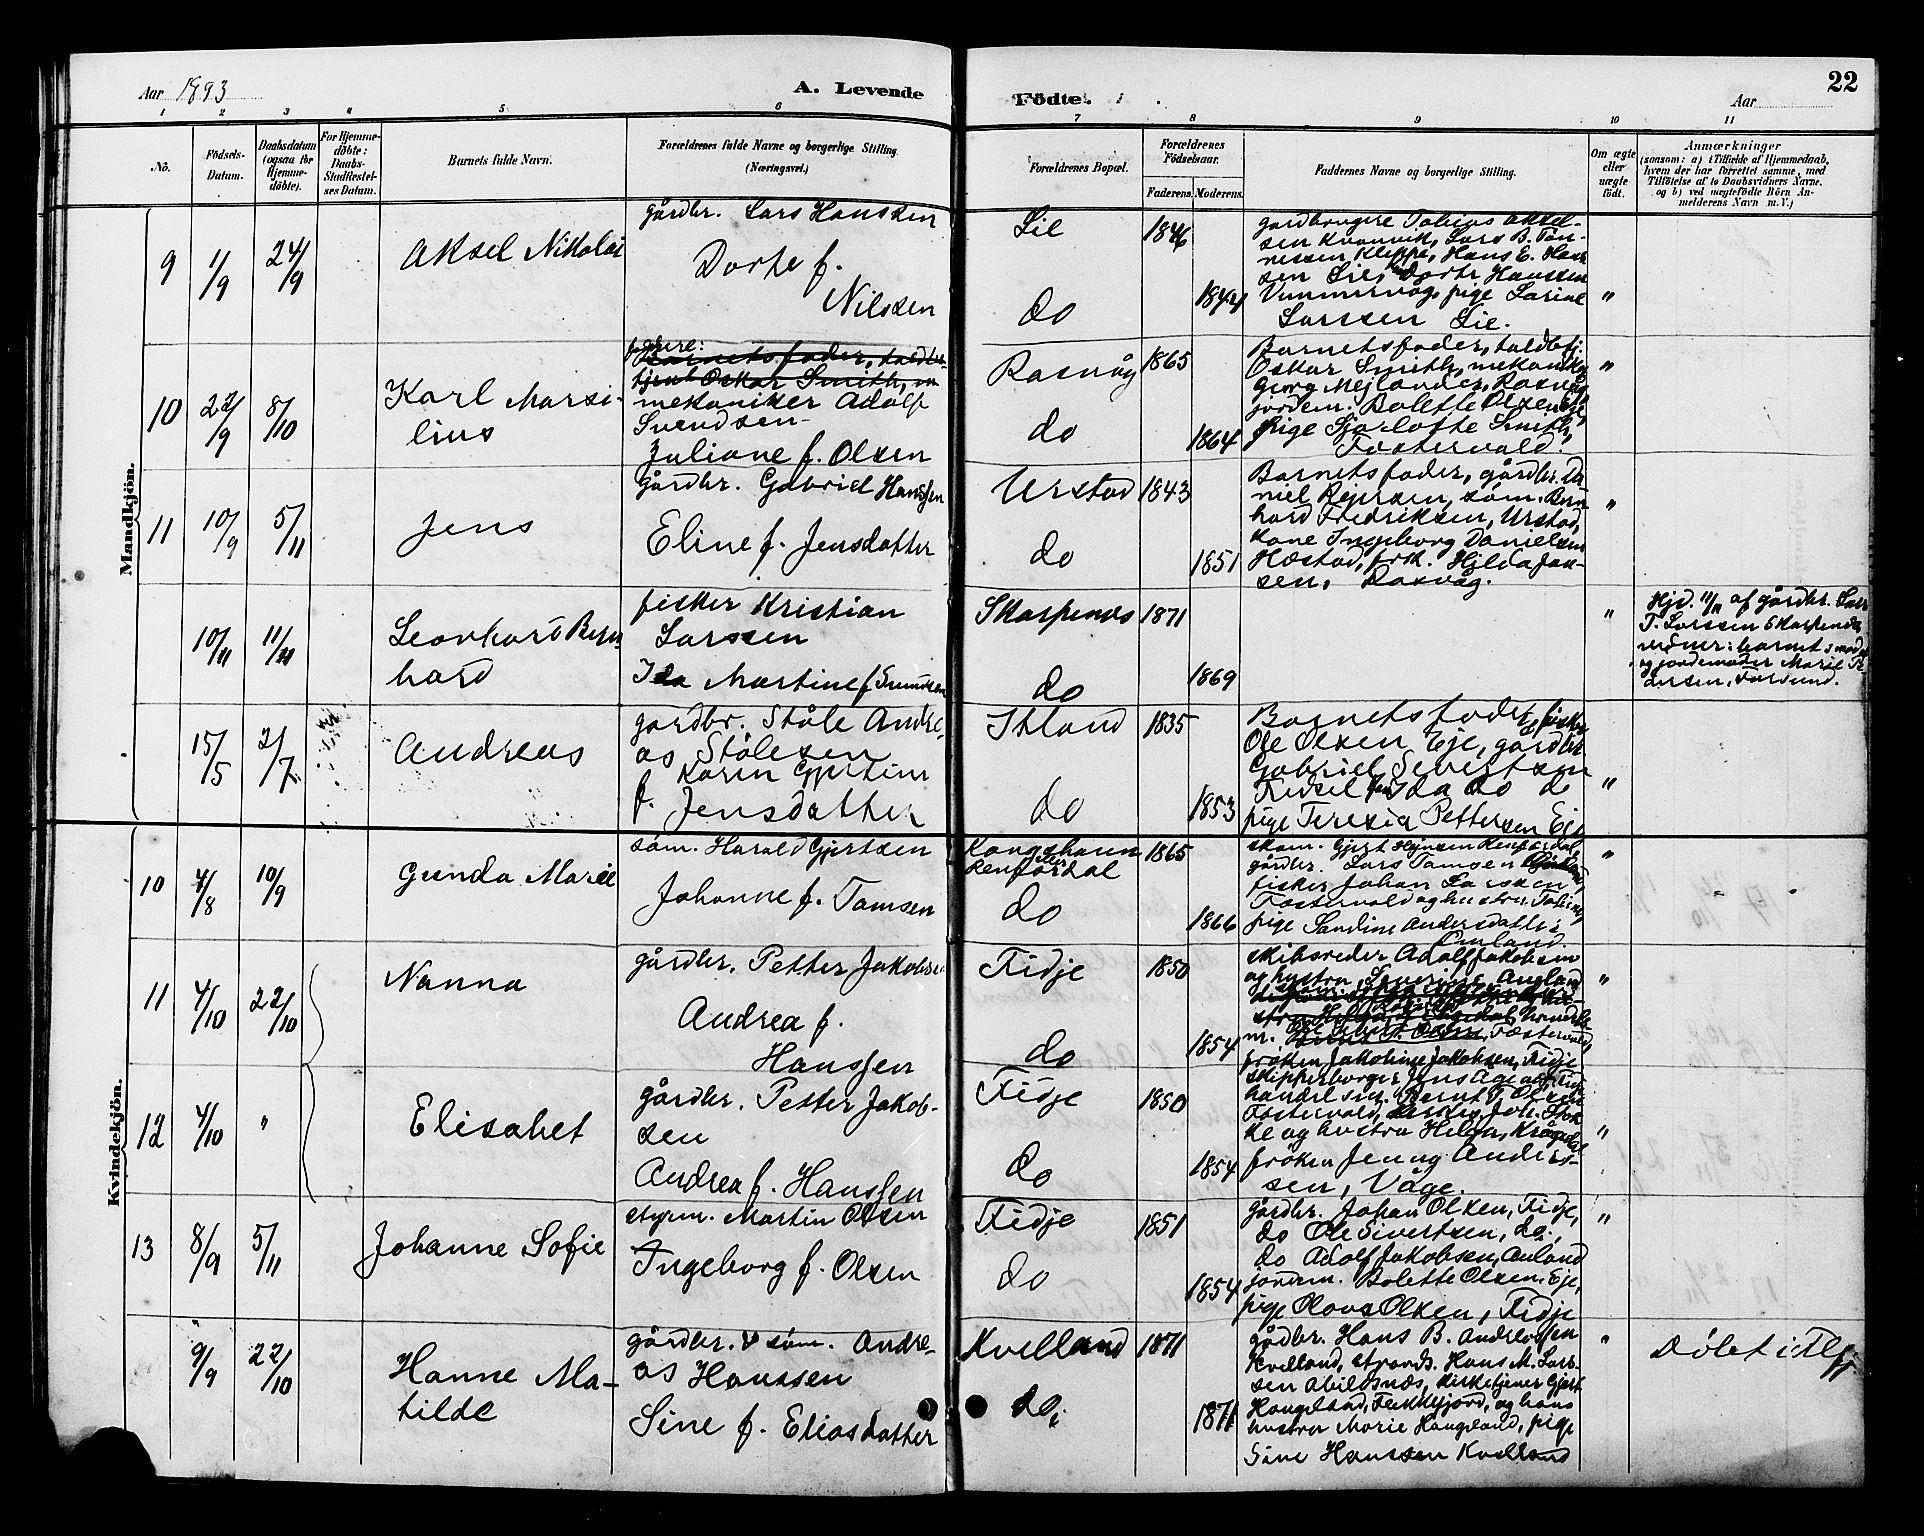 Aar 1893
A. Levende
Födte.
Aar
22
1 2 3 4 5 6 7 8 9 10 11
No.
Födsels-Datum.
Daabsdatum (ogsaa for Hjemme-döbte).
For Hjemme-döbte: Daabs-Stadfæstelses Datum.
Barnets fulde Navn.
Forældrenes fulde Navne og borgerlige Stilling. (Næringsvei.)
Forældrenes Bopæl.
Forældrenes Födselsaar.
Faderens. Moderens.
Faddernes Navne og borgerlige Stilling.
Om ægte eller uægte født.
Anmærkninger
(saasom: a) i Tilfælde af Hjemmedaab,
hvem der har forrettet samme, med
Tilföielse af to Daabsvidners Navne.
og b) ved uægtefödte Börn An-
melderens Navn m. V.)
Mandkjön.
9 1/9 24/9 Aksel Nikolai
gårdbr. Lars Hanssen
Dorte f.
Nilssen
Lie 1846
do 1844
gårdbrugere Tobias Aksel-
sen Kvanvik, Lars B. Tøn-
nessen Kleppe, Hans E. Hans-
sen Lie, Dorte Hanssen
pige Larine
Larssen Lie.
"
10 22/9 8/10 Karl Marsi-
lius
Barnets fader, toldbe-
tjent Oskar Smith,
mekaniker Adolf
Svendsen
Juliane f. Olsen
Rasvåg 1865
do 1864
Barnets fader, toldbetj.
Oskar Smith, mekaniker
Georg Mejlænder, Rasvåg
jordem. Bolette Olsen Eje,
pige Sjarlotte Smith,
Fostervold.
"
11 10/9 5/11 Jens
Gårdbr. Gabriel Hanssen
Eline f. Jensdatter
Urstad 1843
do 1851
Barnets fader, gårdbr. Da-
niel Rejersen, søm. Bern-
hard Fredriksen, Urstad,
kone Ingeborg Danielsen
Hæstad, frk. Hilda Jan-
sen, Rasvåg.
"
10/11 11/11 Leonhard Bern-
hard
fisker Kristian
Larssen
Ida Martine f. Svendsen
Skarpenes 1871
do 1869
"
Hjd. 11/11 af gårdbr. Lars
T. Larssen Skarpenes
vidner: barnets moder
og jordemoder Marie Pe-
dersen, Farsund.
15/5 2/7 Andreas
gårdbr. Ståle Andre-
as Stålesen
Karen Gjertine
f. Jensdatter
Itland 1835
do 1853
Barnets fader, fisker
Ole Olsen Eje, gårdbr.
Gabriel Severtsen
Fidsel Ida do do
pige Teresia Pettersen Eje
"
Kvindekjön.
10 4/8 10/9 Gunda Marie
søm. Harald Gjertsen
Johanne f. Tomsen
Kongshavn
Renfordal 1865
do 1866
skom. Gjert Renfordal,
gårdbr. Lars Tomsen
fisker Johan Larssen,
Fostervold og hustru Tobine,
pige Sandine Andersdatter
Omland.
"
11 4/10 22/10 Nanna
gårdbr. Petter Jakobsen
Andrea f.
Hanssen
Fidje 1850
do 1854
skibsreder Adolf Jakobsen
og hustru Severine, Angland
Fostervold,
frøken Jakobine Jakobsen, Fidje
"
12 4/10 " Elisabet
gårdbr. Petter Jakob-
sen
Andrea f. Hanssen
Fidje 1850
do 1854
skipperborger Jens
handelsm. Bernt Olsen
Fostervold, Joh. Stok-
ke og hustru Helga, Krågedal
frøken Jenny Anders-
sen, Våge.
"
13 8/9 5/11 Johanne Sofie
styrm. Martin Olsen
Ingeborg f. Olsen
Fidje 1851
do 1854
gårdbr. Johan Olsen, Fidje,
do Ole Sivertsen, do.,
do Adolf Jakobsen, Anland
jordem. Bolette Olsen, Eje,
pige Olava Olsen, Fidje
"
9/9 22/10 Hanne Ma-
tilde
gårdbr. & søm. Andre-
as Hanssen
Sine f. Eliasdatter
Kvelland 1871
do. 1871
gårdbr. Hans B. Andreassen
Kvelland, strands. Hans M. Lars-
sen Abildsnæs, kirketjener Gjert
Haugeland, Flekkefjord, og hans
hustru Marie Haugeland, pige
Sine Hanssen Kvelland
"
Døbt i Flfj.